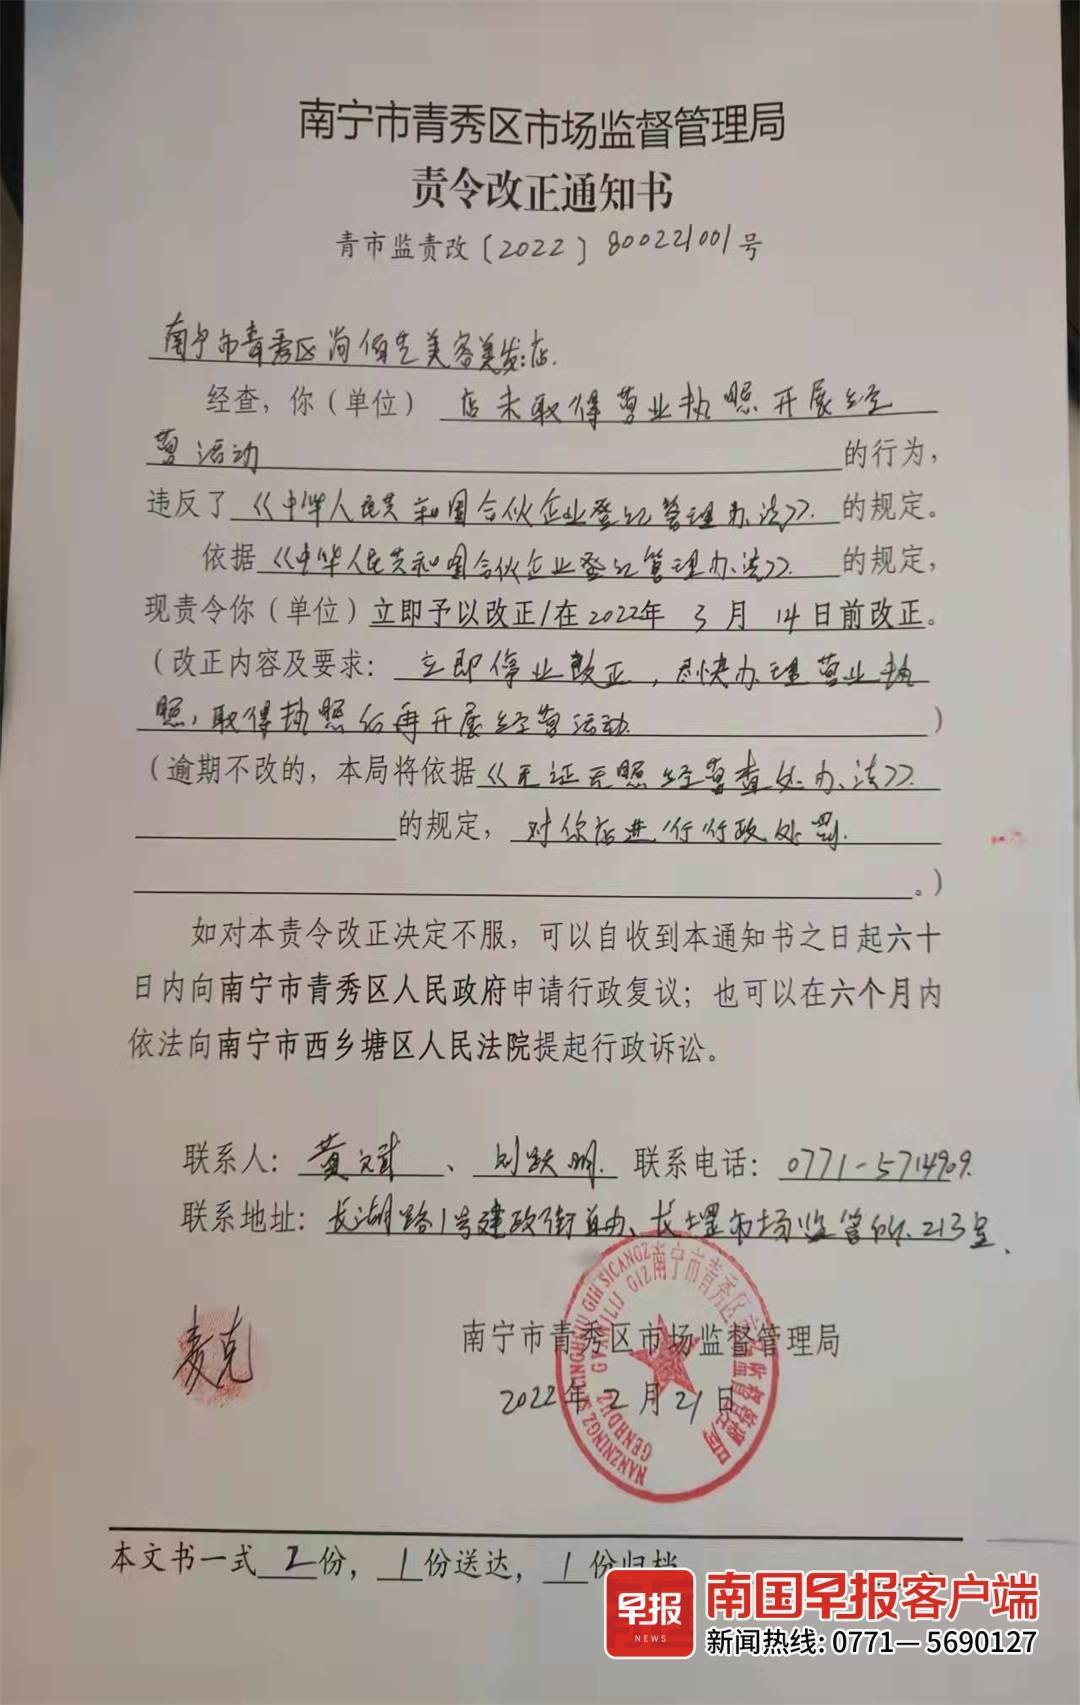 南宁市青秀区市场监督管理局
责令改正通知书
青市监责改〔2022〕800221001号
南宁市青秀区尚佰艺美容美发店.
经查，你（单位）店未取得营业执照开展经
营活动的行为，
违反了《中华人民共和国合伙企业登记管理办法》.的规定。
依据《中华人民共和国合伙企业登记管理办法》.的规定，
现责令你（单位）立即予以改正/在2022年3月14日前改正。
（改正内容及要求：立即停业改正，尽快办理营业执
照，取得执照后再开展经营活动.）
（逾期不改的，本局将依据《无证无照经营查处办法》.
的规定，对你店进行行政处罚.
。）
如对本责令改正决定不服，可以自收到本通知书之日起六十
日内向南宁市青秀区人民政府申请行政复议；也可以在六个月内
依法向南宁市西乡塘区人民法院提起行政诉讼。
联系人：黄斌、刘跃明.联系电话：0771-5714909.
联系地址：长湖路1号建政街道办、长堽市场监管所.213室、
NANZNINGZ SI CINGHSIU GIH SICANGZ GENHDUZ GVANJLIJ GIZ
南宁市青秀区市场监督管理局
南宁市青秀区市场监督管理局
2022年2月21日
麦克
本文书一式2份，1份送达，1份归档
早报
NEWS
南国早报客户端
新闻热线：0771—5690127